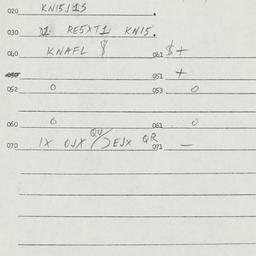 020 KNI5J1S
030 D1 RE5XT1 KNI5.
040 KNAFL $ 061 $+
051 +
052 0 053 0
060 0 061 0
070 IX OJX QU EJX QR 071 —